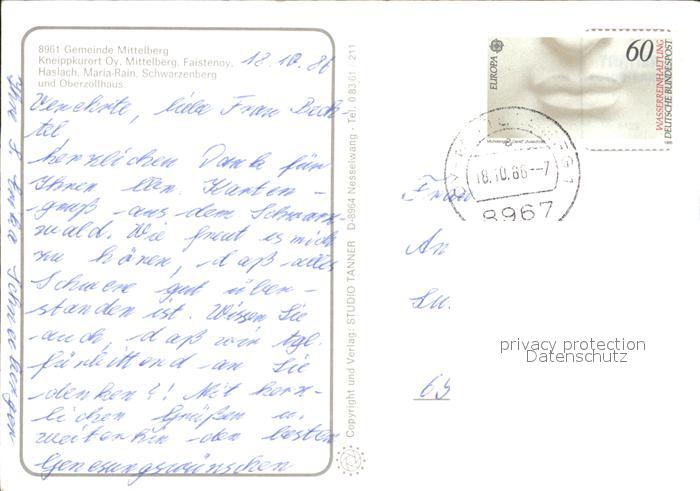 8961 Gemeinde Mittelberg
Kneippkurort Oy, Mittelberg, Faistenoy,
Haslach, Maria-Rain, Schwarzenberg
und Oberzollhaus
18.10.86
Verehrte, liebe Frau Bech-
tel
herzlichen Dank für
Ihren lb. Karten-
gruß aus dem Schwarz-
wald. Wie freut es mich
zu hören, daß alles
Schwere gut über-
standen ist. Wissen Sie
auch, daß wir tgl.
fürbittend an Sie
denken?! Mit herz-
lichen Grüßen u.
weiterhin den besten
Genesungswünschen
Ihre S. Erika
Copyright und Verlag: STUDIO TANNER D-8964 Nesselwang - Tel. 0 83 61 / 211
EUROPA
60
WASSERREINHALTUNG
DEUTSCHE BUNDESPOST
18.10.86--7
8967
Frau
An
Lu.
69
privacy protection
Datenschutz